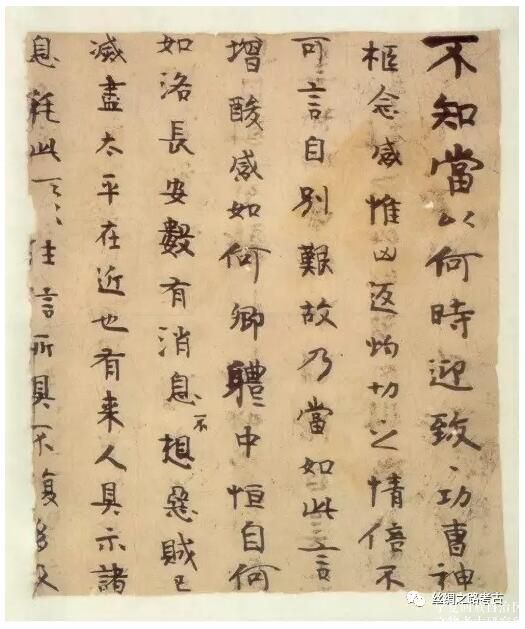 不知當以何時迎致、功曹神
柩念感惟凶返灼切之情倍不
可言自別艱故乃當如此言
增酸感如何卿體中恒自何
如洛長安數有消息不想惡賊已
滅盡太平在近也有来人具示諸
息耗此往言所具不復多及
丝绸之路考古